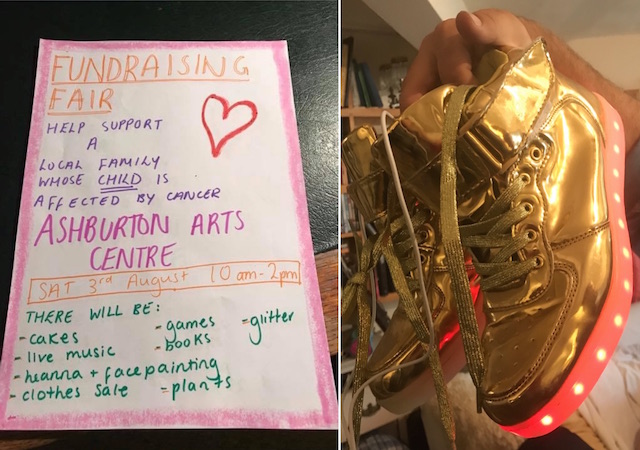 FUNDRAISING
FAIR
HELP SUPPORT
A
LOCAL FAMILY
WHOSE CHILD IS
AFFECTED BY CANCER
ASHBURTON ARTS
CENTRE
SAT 3rd August 10am-2pm
THERE WILL BE:
- cakes
- live music
- heanna + facepainting
- clothes sale
- games
- books
- plants
- glitter